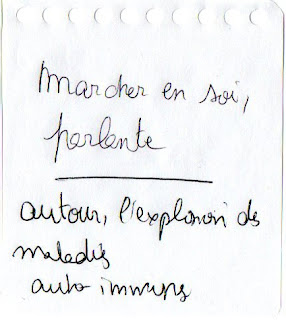 marcher en soi,
parlante
autour, l'explosion des
maladies
auto immunes